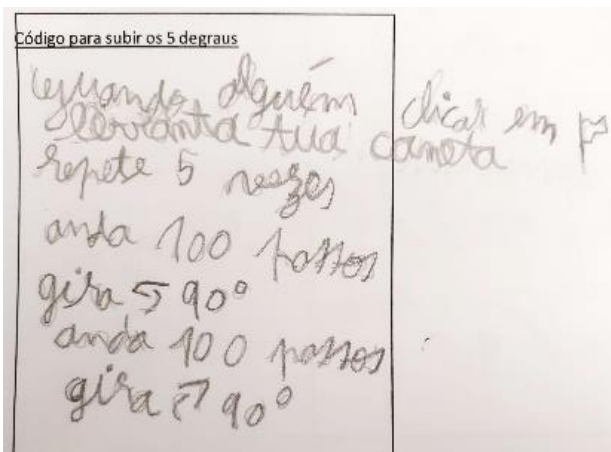 Código para subir os 5 degraus
Quando alguém clicar em
levanta tua caneta
repete 5 vezes
anda 100 passos
gira ↶ 90°
anda 100 passos
gira ↷ 90°